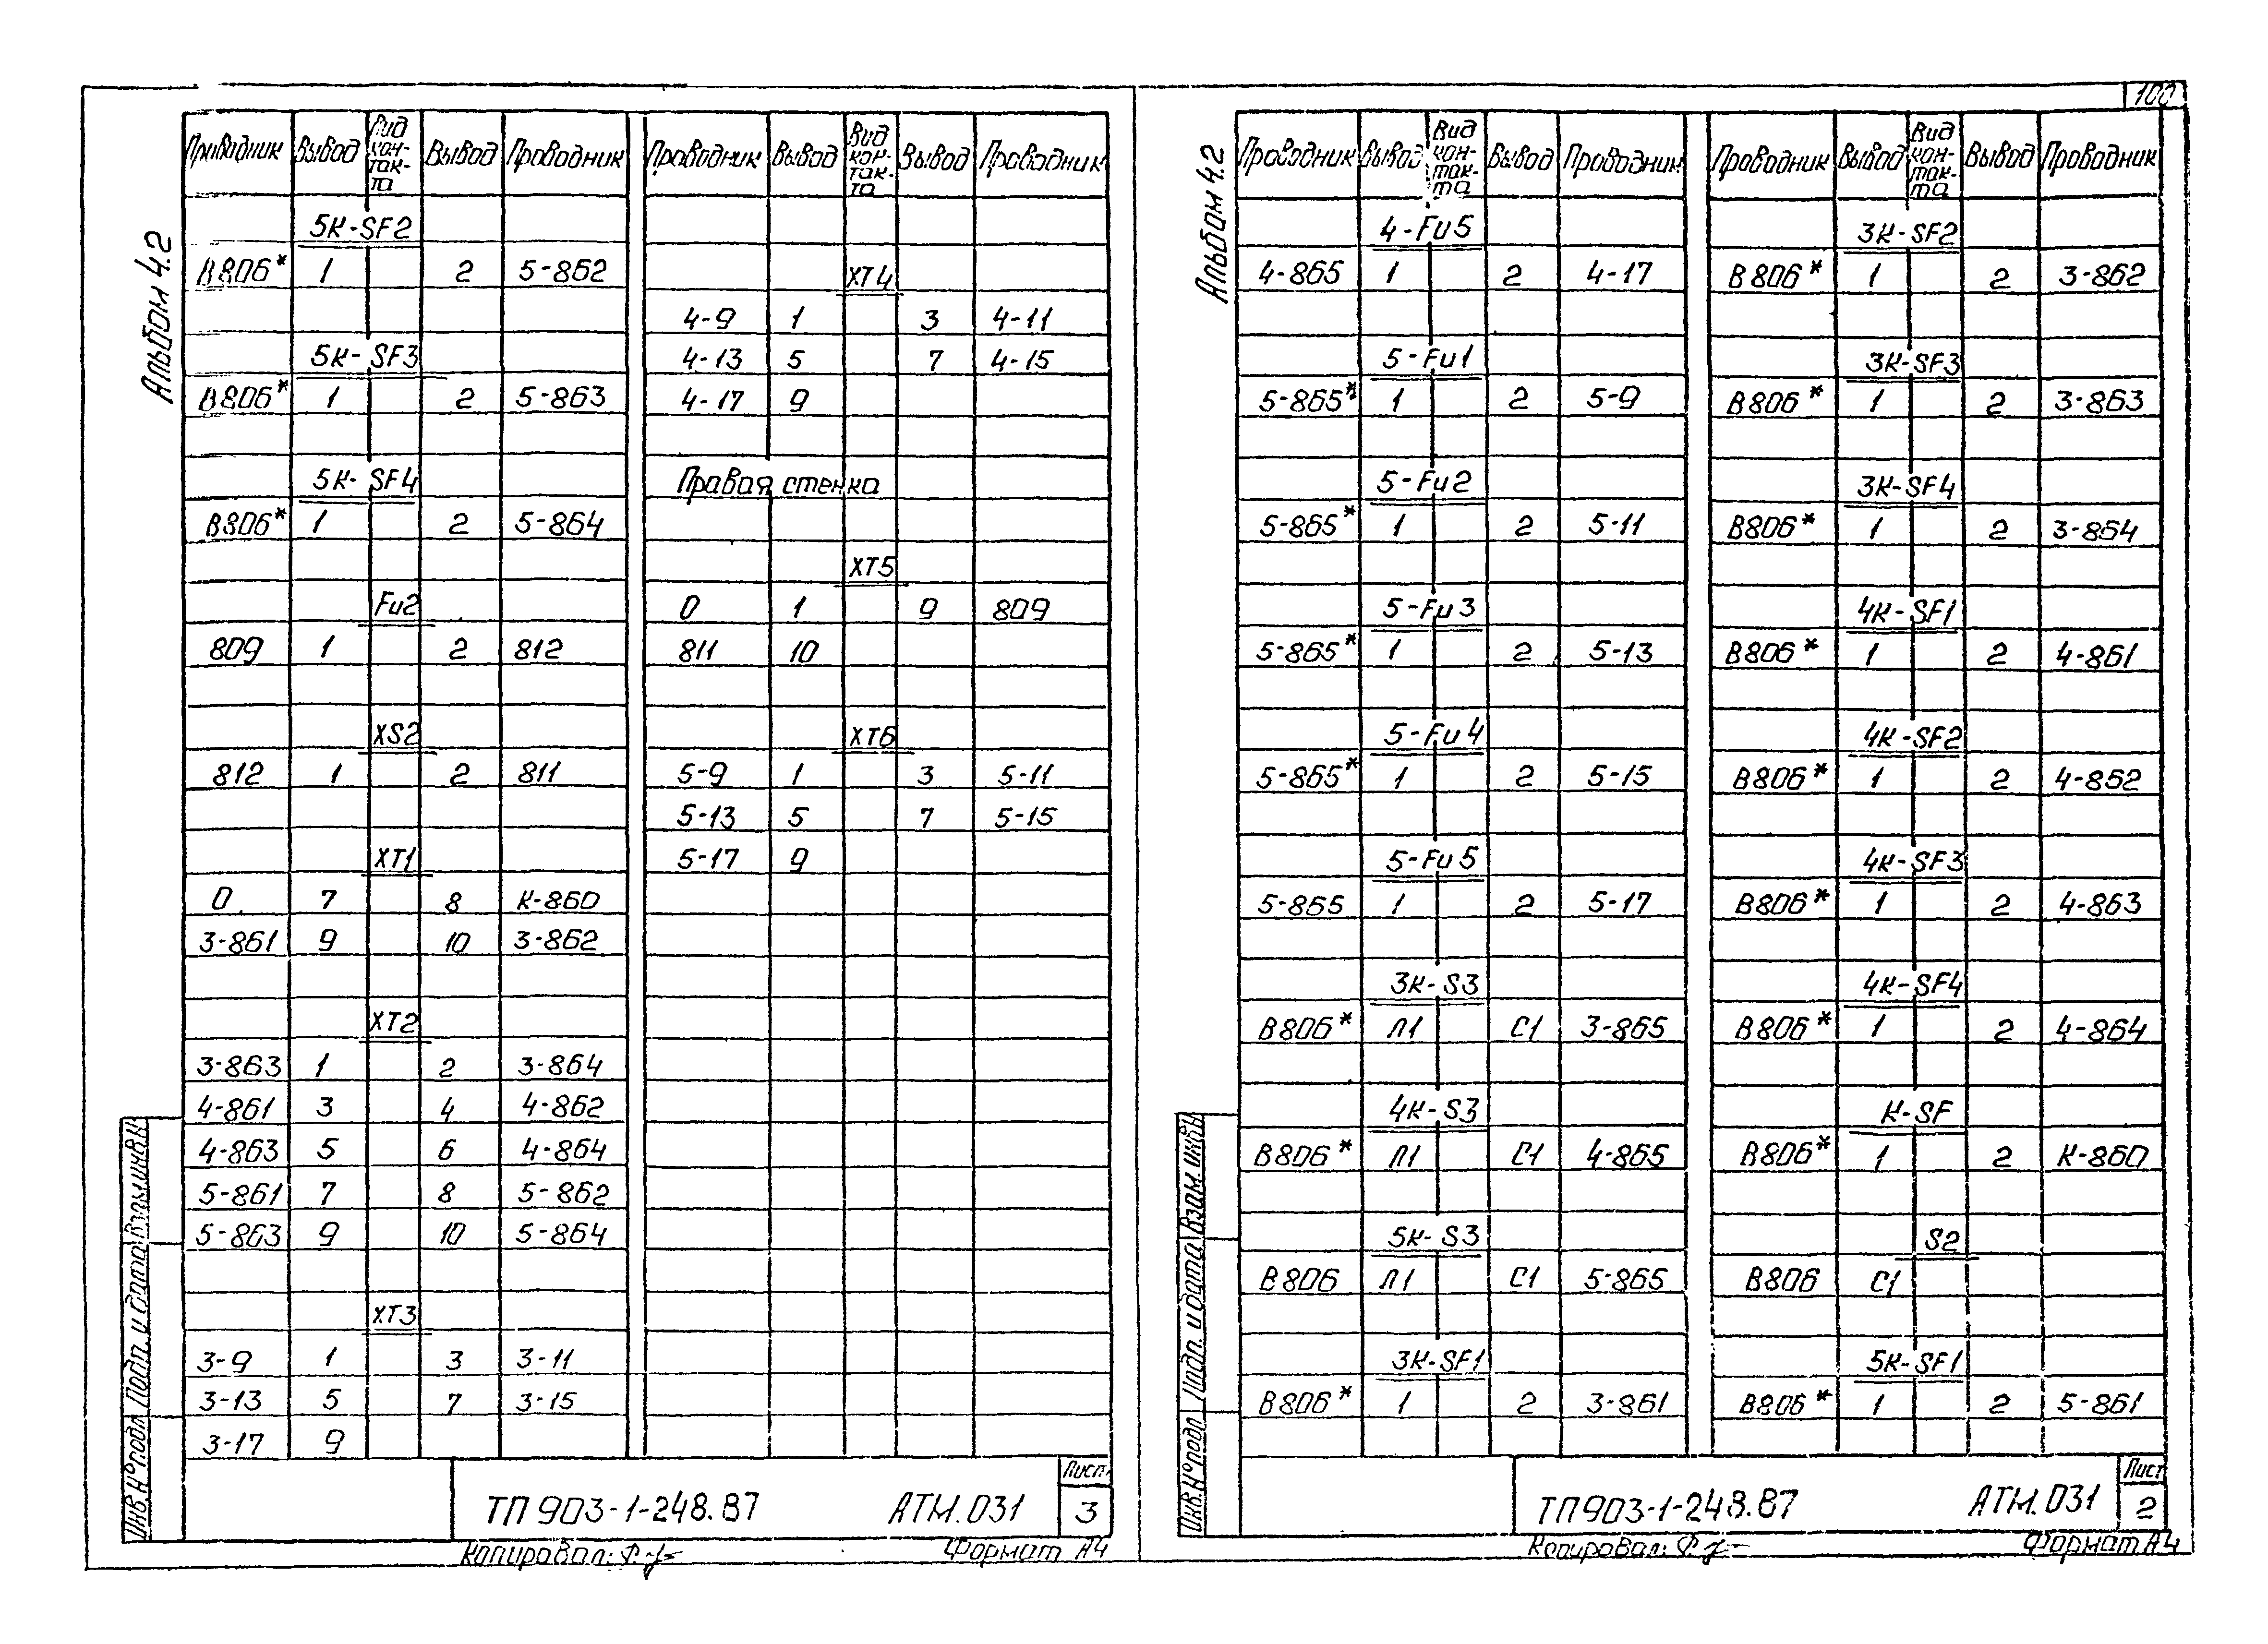 100
Альбом 4.2
Проводник Вывод Вид кон-так-та Вывод Проводник Проводник Вывод Вид кон-так-та Вывод Проводник
5К-SF2
В806* 1 2 5-862
5К-SF3
В806* 1 2 5-863
5К-SF4
В806* 1 2 5-864
Fu2
809 1 2 812
XS2
812 1 2 811
XT1
0 7 8 К-860
3-861 9 10 3-862
XT2
3-863 1 2 3-864
4-861 3 4 4-862
4-863 5 6 4-864
5-861 7 8 5-862
5-863 9 10 5-864
XT3
3-9 1 3 3-11
3-13 5 7 3-15
3-17 9
XT4
4-9 1 3 4-11
4-13 5 7 4-15
4-17 9
Правая стенка
XT5
0 1 9 809
811 10
XT6
5-9 1 3 5-11
5-13 5 7 5-15
5-17 9
Инв.N°подл. Подп. и дата Взам.инв.N
ТП 903-1-248.87 АТМ.031
Лист
3
Копировал: Формат А4
Альбом 4.2
Проводник Вывод Вид кон-так-та Вывод Проводник Проводник Вывод Вид кон-так-та Вывод Проводник
4-Fu5
4-865 1 2 4-17
5-Fu1
5-865* 1 2 5-9
5-Fu2
5-865* 1 2 5-11
5-Fu3
5-865* 1 2 5-13
5-Fu4
5-865* 1 2 5-15
5-Fu5
5-865 1 2 5-17
3К-S3
В806* Л1 С1 3-865
4К-S3
В806* Л1 С1 4-865
5К-S3
В806 Л1 С1 5-865
3К-SF1
В806* 1 2 3-861
3К-SF2
В806* 1 2 3-862
3К-SF3
В806* 1 2 3-863
3К-SF4
В806* 1 2 3-864
4К-SF1
В806* 1 2 4-861
4К-SF2
В806* 1 2 4-862
4К-SF3
В806* 1 2 4-863
4К-SF4
В806* 1 2 4-864
К-SF
В806* 1 2 К-860
S2
В806 С1
5К-SF1
В806* 1 2 5-861
Инв.N°подл. Подп. и дата Взам.инв.N
ТП 903-1-248.87 АТМ.031
Лист
2
Копировал: Формат А4